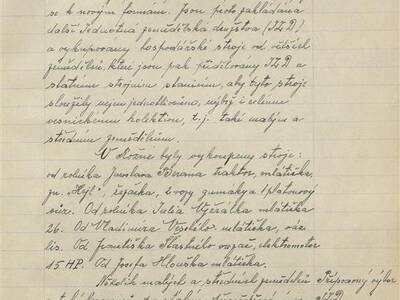 se k novým formám. Jsou proto zakládána
další Jednotná zemědělská družstva (JZD)
a vykupovány hospodářské stroje od větších
zemědělců, které jsou pak přidělovány JZD a
státním strojním stanicím, aby tyto stroje
sloužily nejen jednotlivcům, nýbrž i celému
vesnickému kolektivu, t.j. také malým a
středním zemědělcům.
V Rožné byly vykoupeny stroje:
od rolníka Jaroslava Berana traktor, mlátička,
zn. „Hyl", řezačka, 2 vozy gumáky a 1 platonový
vůz. Od rolníka Julia Vyčvalka mlátička
26. Od Vladimíra Veselého: mlátička, váz
lis. Od Františka Šťastného vazač, elektromotor
15 HP. Od Josefa Hlouška mlátička.
Několik malých a středních zemědělců Přípravný výbor
JZD